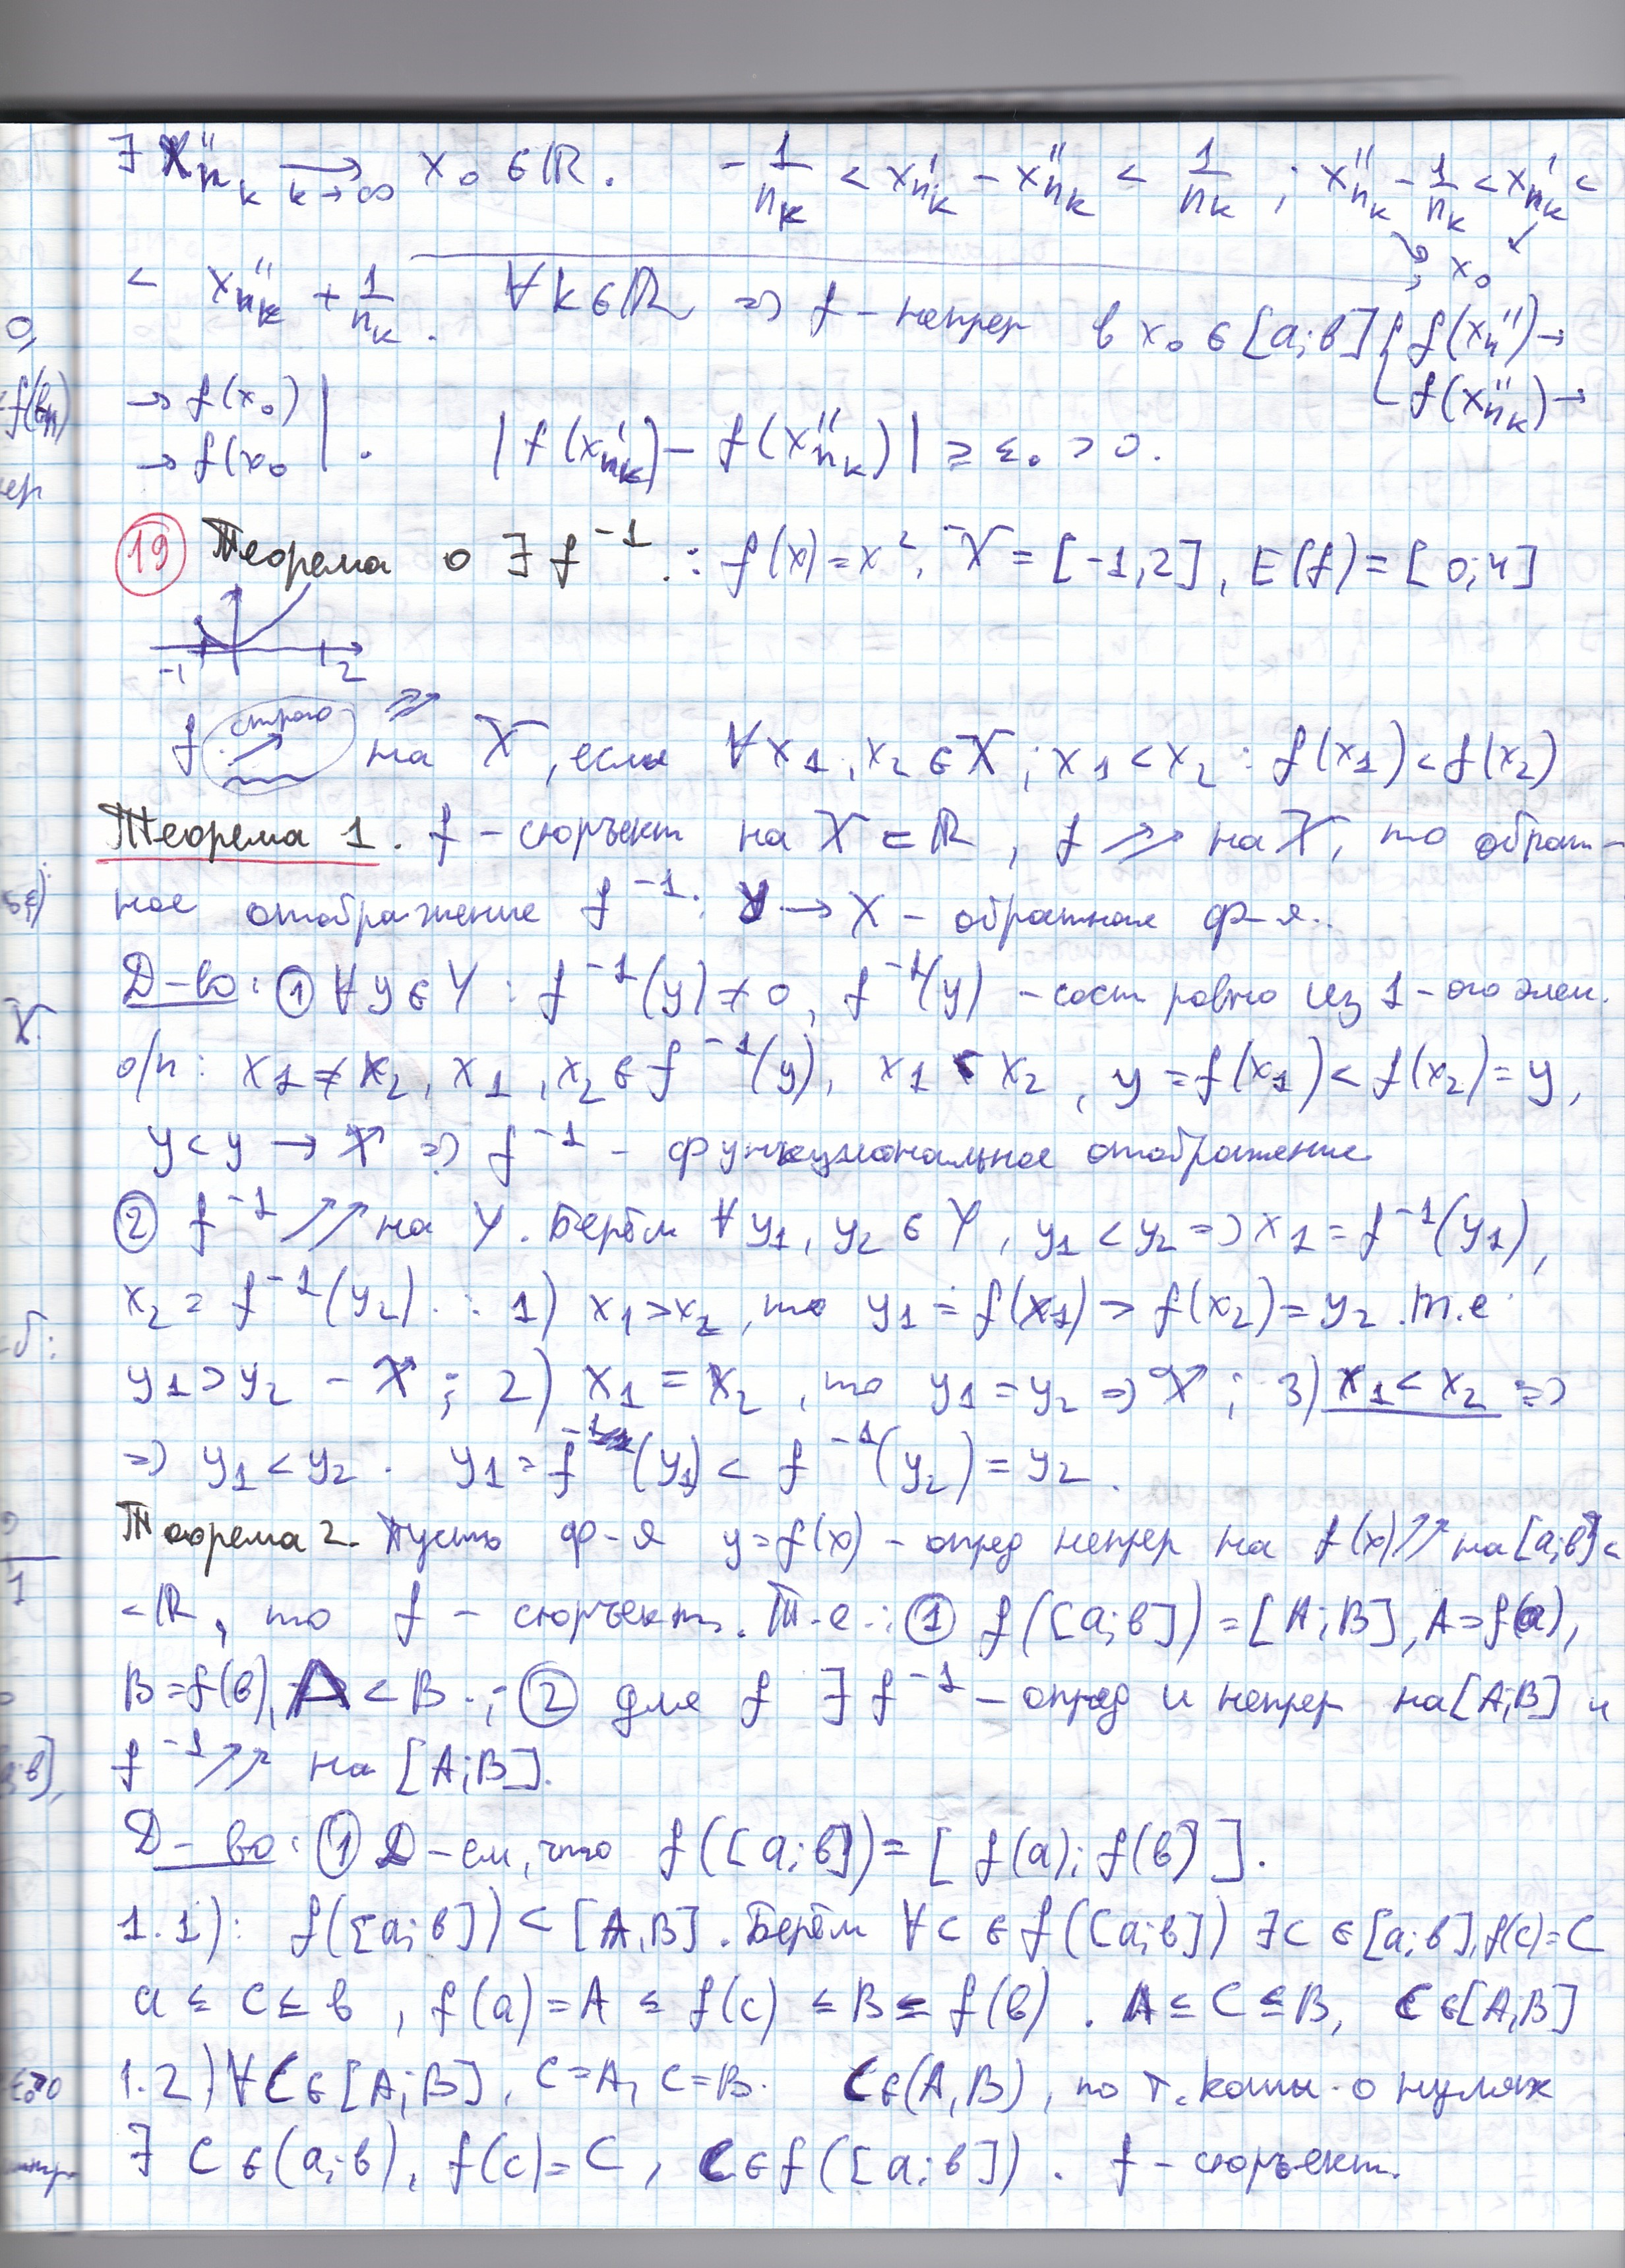 ∃ x''_{n_k} →_{k→∞} x₀ ∈ ℝ. -1/n_k < x'_{n_k} - x''_{n_k} < 1/n_k ; x''_{n_k} - 1/n_k < x'_{n_k} <
x₀
< x''_{n_k} + 1/n_k. ∀k∈ℝ ⇒ f - непрер в x₀ ∈ [a;b] { f(x_n'') →
f(x''_{n_k}) →
→ f(x₀)
→ f(x₀ | . |f(x'_{n_k}) - f(x''_{n_k})| ≥ ε₀ > 0.
⑲ Теорема о ∃ f⁻¹ .: f(x)=x², X = [-1,2], E(f) = [0;4]
-1 2
строго
f ↗ ⇗ на X, если ∀x₁,x₂∈X; x₁<x₂ : f(x₁)<f(x₂)
Теорема 1. f - сюръект на X ⊂ ℝ, f ⇗ на X, то обрат-
ное отображение f⁻¹: Y → X - обратная ф-я.
Д-во: ① ∀y∈Y : f⁻¹(y) ≠ 0, f⁻¹(y) - сост ровно из 1-ого элем.
о/п: x₁≠x₂, x₁, x₂ ∈ f⁻¹(y), x₁ < x₂, y = f(x₁) < f(x₂) = y,
y<y → X ⇒ f⁻¹ - функциональное отображение
② f⁻¹ ⇗ на Y. Берём ∀y₁, y₂ ∈ Y, y₁ < y₂ ⇒ x₁ = f⁻¹(y₁),
x₂ = f⁻¹(y₂). : 1) x₁>x₂, то y₁ = f(x₁) > f(x₂) = y₂. т.е
y₁>y₂ - X ; 2) x₁ = x₂, то y₁ = y₂ ⇒ X ; 3) x₁ < x₂ ⇒
⇒ y₁ < y₂. y₁ = f⁻¹(y₁) < f⁻¹(y₂) = y₂.
Теорема 2. Пусть ф-я y=f(x) - опред непрер на f(x) ⇗ на [a;b] ⊂
⊂ ℝ, то f - сюръект. Т.е.: ① f([a;b]) = [A;B], A=f(a),
B=f(b), A < B .; ② для f ∃ f⁻¹ - опред и непрер на [A;B] и
f⁻¹ ⇗ на [A;B].
Д-во: ① Д-ем, что f([a;b]) = [f(a); f(b)].
1.1): f([a;b]) ⊂ [A,B]. Берём ∀C ∈ f([a;b]) ∃c ∈ [a;b], f(c)=C
a ≤ c ≤ b, f(a) = A ≤ f(c) ≤ B ≤ f(b). A ≤ C ≤ B, C∈[A,B]
1.2) ∀C∈[A;B], C=A, C=B. C∈(A,B), по т. Коши о нулях
∃ c∈(a;b), f(c)=C, C∈f([a;b]). f - сюръект.